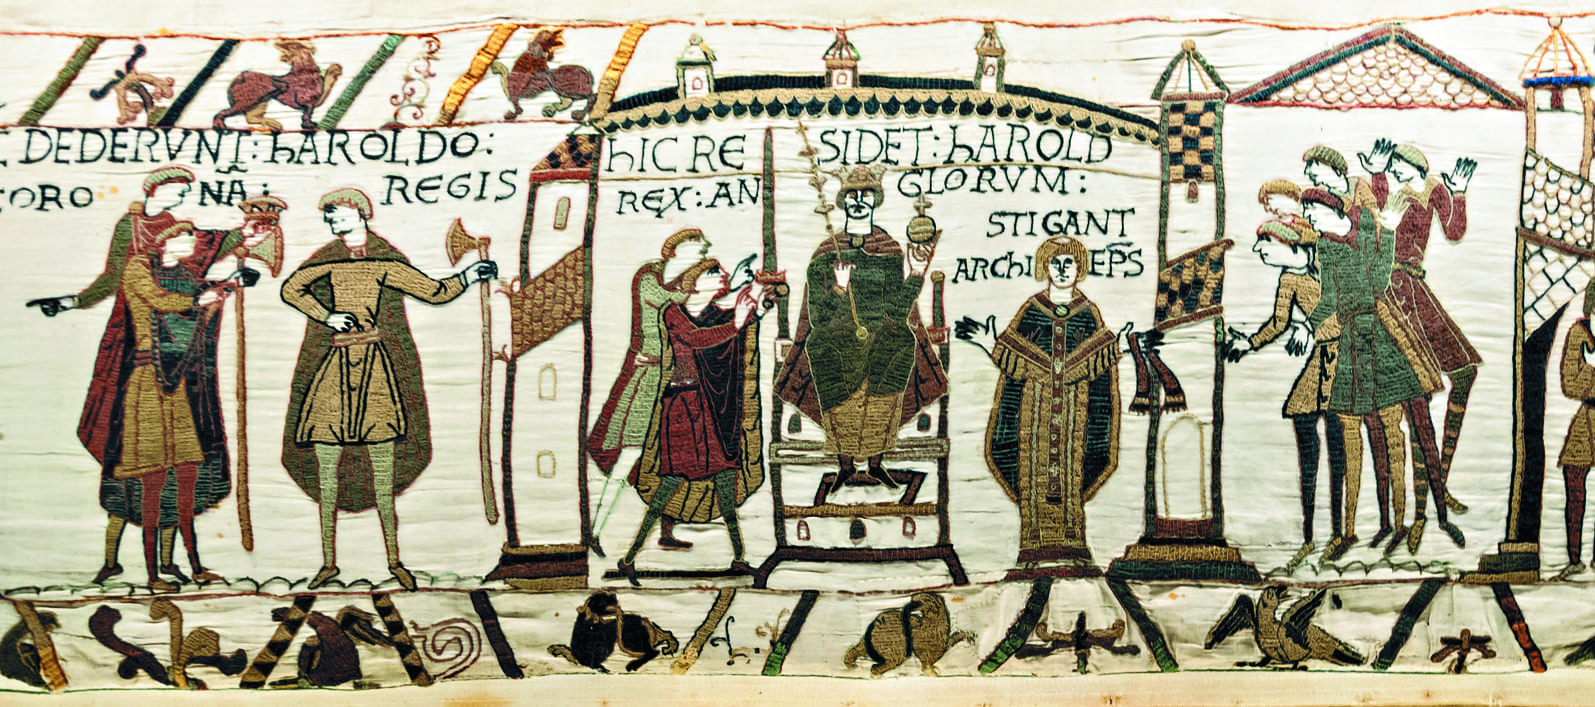 DEDERVNT: hAROLDO:
CORONĀ: REGIS
hIC RESIDET: hAROLD
REX: ANGLORVM:
STIGANT
ARChIEP̄S